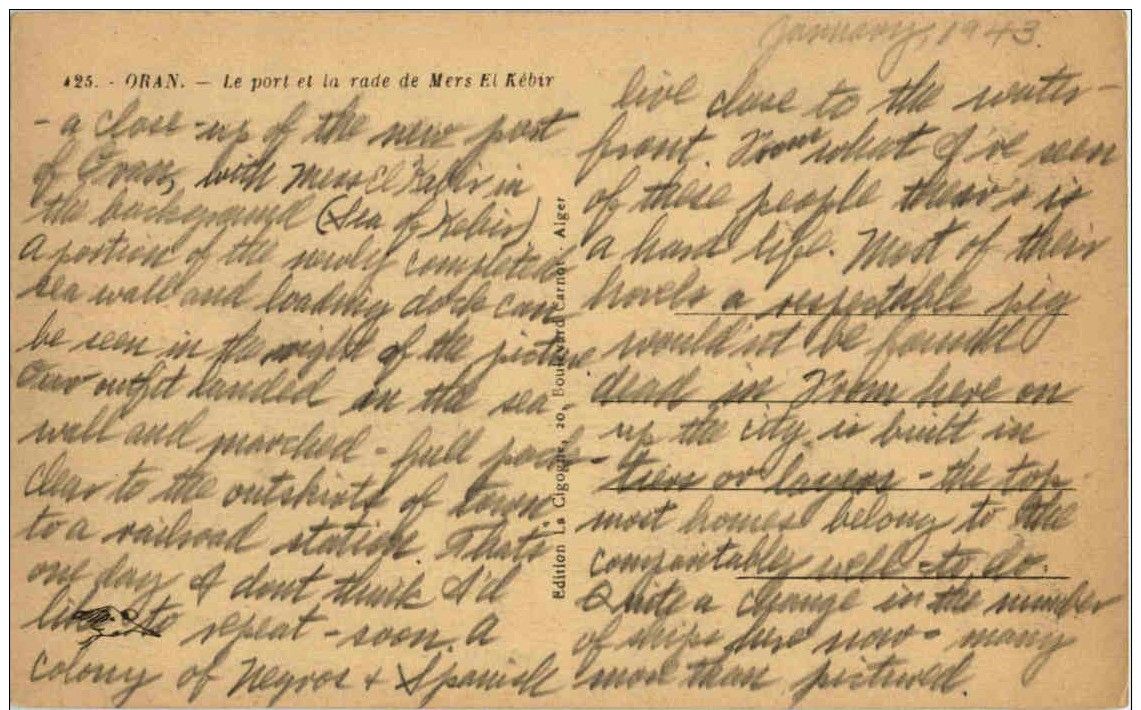 January, 1943
425. - ORAN. — Le port et la rade de Mers El Kébir
- a close-up of the new port
of Oran, with Mers El Kebir in
the background (Sea of Kebir)
a portion of the newly completed
sea wall and loading dock can
be seen in the right of the picture.
Our outfit landed in the sea-
wall and marched - full pack -
clear to the outskirts of town
to a railroad station. That's
one day I dont think I'd
like to repeat - soon. A
colony of negros + Spanish
Edition La Cigogne, 20, Boulevard Carnot - Alger
live close to the water-
front. From what I've seen
of these people theirs is
a hard life. Most of their
hovels a respectable pig
would not be found
dead in. From here on
up the city is built in
tiers or layers - the top
most homes belong to the
comfortably well-to-do.
Quite a change in the number
of ships here now - many
more than pictured.